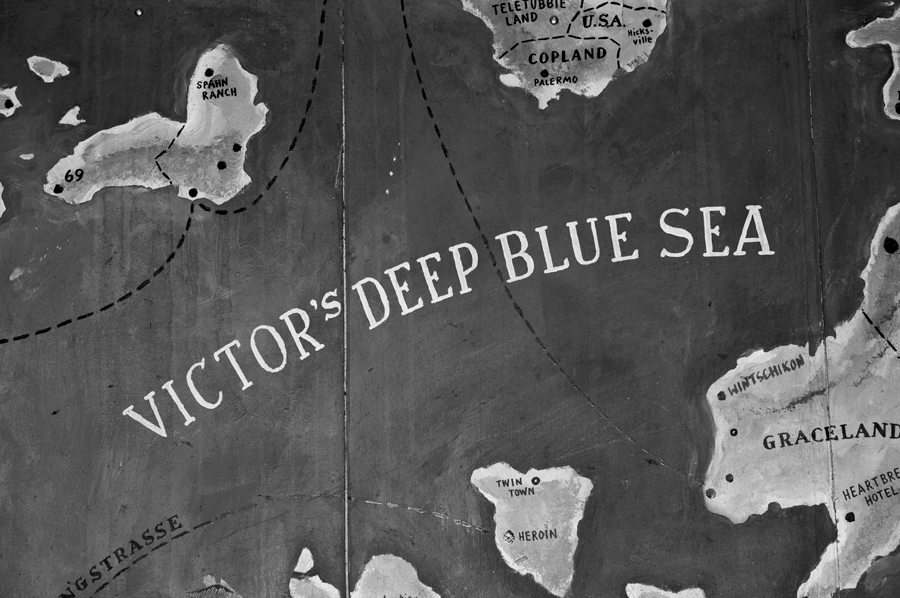 TELETUBBIE
LAND
U.S.A.
Hicks-
ville
COPLAND
PALERMO
SPAHN
RANCH
69
VICTOR'S DEEP BLUE SEA
WINTSCHIKON
GRACELAND
HEARTBRE
HOTEL
TWIN
TOWN
HEROIN
NGSTRASSE